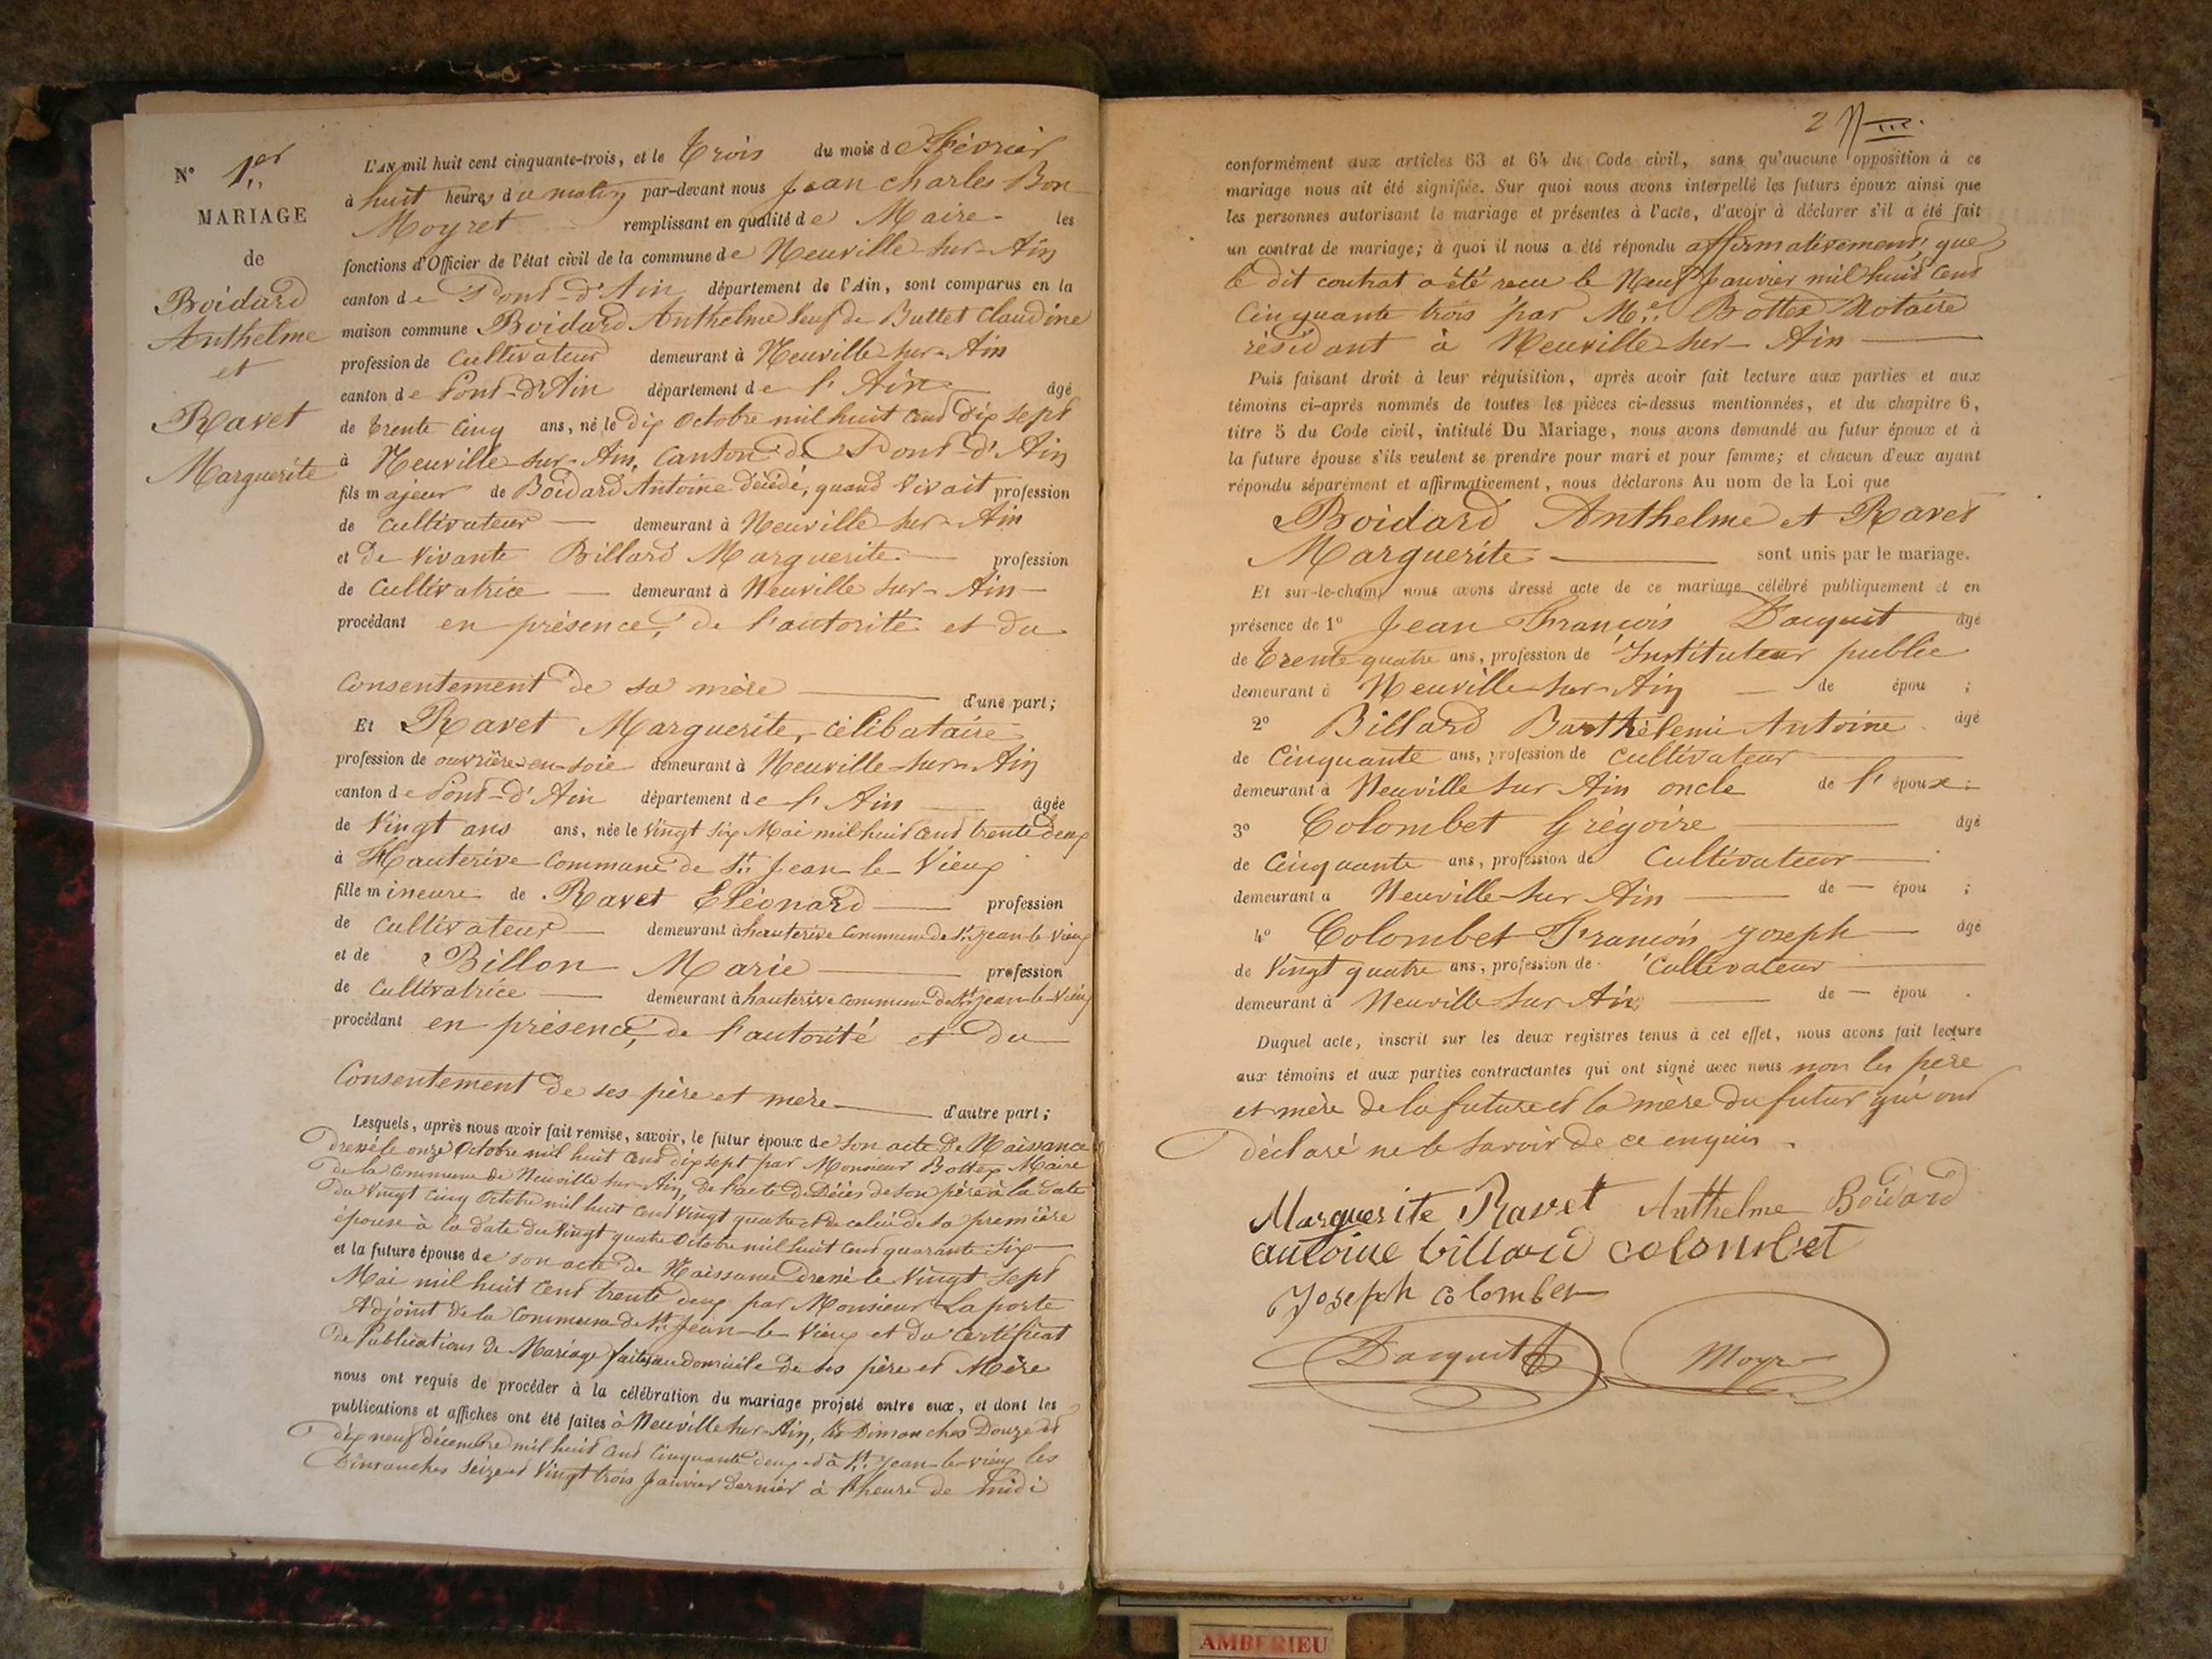 N° 1er
MARIAGE
de
Boidard
Anthelme
et
Ravet
Marguerite
L'AN mil huit cent cinquante-trois, et le Trois du mois de Février
à huit heures du matin par-devant nous Jean Charles Bon
Moyret remplissant en qualité de Maire les
fonctions d'Officier de l'état civil de la commune de Neuville-sur-Ain
canton de Pont-d'Ain département de l'Ain, sont comparus en la
maison commune Boidard Anthelme Veuf de Buttet Claudine
profession de Cultivateur demeurant à Neuville-sur-Ain
canton de Pont-d'Ain département de l'Ain âgé
de trente cinq ans, né le dix Octobre mil huit cent dix sept
à Neuville-sur-Ain, Canton de Pont-d'Ain
fils majeur de Boidard Antoine décédé, quand vivait profession
de Cultivateur demeurant à Neuville-sur-Ain
et de vivante Billard Marguerite profession
de Cultivatrice demeurant à Neuville sur-Ain
procédant en présence, de l'autorité et du
Consentement de sa mère d'une part;
Et Ravet Marguerite, célibataire
profession de ouvrière-en-soie demeurant à Neuville-sur-Ain
canton de Pont-d'Ain département de l'Ain âgée
de Vingt ans ans, née le Vingt six Mai mil huit cent trente deux
à Hauterive Commune de St Jean-le-Vieux
fille mineure de Ravet Eléonard profession
de Cultivateur demeurant à hauterive Commune de St Jean-le-Vieux
et de Billon Marie profession
de Cultivatrice demeurant à hauterive commune de St Jean-le-Vieux
procédant en présence, de l'autorité et du
Consentement de ses père et mère d'autre part;
Lesquels, après nous avoir fait remise, savoir, le futur époux de son acte de Naissance
dressé le onze Octobre mil huit cent dix sept par Monsieur Bottex Maire
de la Commune de Neuville sur-Ain, de l'acte de Décès de son père à la date
du Vingt cinq Octobre mil huit cent vingt quatre et de celui de sa première
épouse à la date du Vingt quatre Octobre mil huit cent quarante six
et la future épouse de son acte de Naissance dressé le Vingt sept
Mai mil huit cent trente deux par Monsieur Laporte
Adjoint de la Commune de St Jean-le-Vieux et du Certificat
de Publications de Mariage faites au domicile de ses père et Mère
nous ont requis de procéder à la célébration du mariage projeté entre eux, et dont les
publications et affiches ont été faites à Neuville-sur-Ain, les Dimanches Douze et
dix neuf décembre mil huit cent cinquante deux et à St Jean-le-vieux les
Dimanches Seize et Vingt trois Janvier dernier à l'heure de midi
2
conformément aux articles 63 et 64 du Code civil, sans qu'aucune opposition à ce
mariage nous ait été signifiée. Sur quoi nous avons interpellé les futurs époux ainsi que
les personnes autorisant le mariage et présentes à l'acte, d'avoir à déclarer s'il a été fait
un contrat de mariage; à quoi il nous a été répondu affirmativement, que
le dit contrat a été reçu le Neuf Janvier mil huit cent
Cinquante trois par Me Bottex Notaire
résidant à Neuville-sur-Ain
Puis faisant droit à leur réquisition, après avoir fait lecture aux parties et aux
témoins ci-après nommés de toutes les pièces ci-dessus mentionnées, et du chapitre 6,
titre 5 du Code civil, intitulé Du Mariage, nous avons demandé au futur époux et à
la future épouse s'ils veulent se prendre pour mari et pour femme; et chacun d'eux ayant
répondu séparément et affirmativement, nous déclarons Au nom de la Loi que
Boidard Anthelme et Ravet
Marguerite sont unis par le mariage.
Et sur-le-champ nous avons dressé acte de ce mariage célébré publiquement et en
présence de 1° Jean François Dacquit âgé
de Trente quatre ans, profession de Instituteur public
demeurant à Neuville-sur-Ain de épou ;
2° Billard Barthélemi Antoine âgé
de Cinquante ans, profession de Cultivateur
demeurant à Neuville sur Ain oncle de l'époux;
3° Colombet Grégoire âgé
de Cinquante ans, profession de Cultivateur
demeurant à Neuville-sur Ain de épou ;
4° Colombet François Joseph âgé
de Vingt quatre ans, profession de Cultivateur
demeurant à Neuville sur Ain de épou .
Duquel acte, inscrit sur les deux registres tenus à cet effet, nous avons fait lecture
aux témoins et aux parties contractantes qui ont signé avec nous non les père
et mère de la future et la mère du futur qui ont
déclaré ne le savoir de ce enquis.
Marguerite Ravet Anthelme Boidard
antoine billard colombet
Joseph colombet
Dacquit Moyret
AMBERIEU